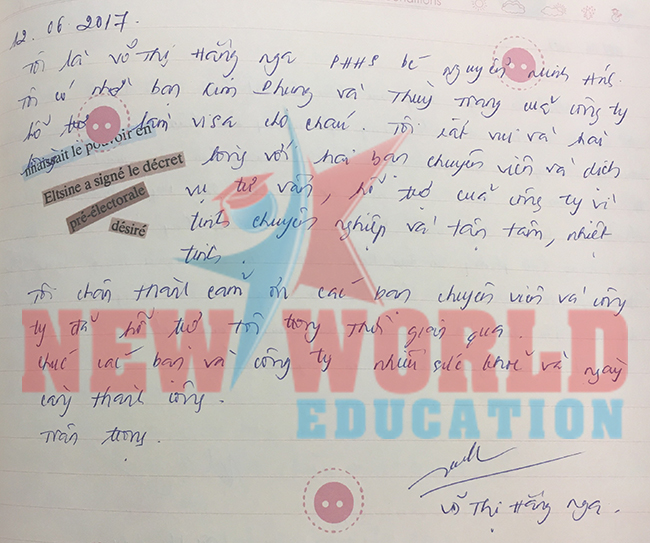 onditions
12.06.2017.
Tôi là Võ Thị Hằng Nga PHHS bé Nguyễn Minh
Tôi có nhờ bạn Kim Phụng và Thuỳ Trang của công ty
hỗ trợ làm visa cho cháu. Tôi rất vui và hài
lòng với hai bạn chuyên viên và dịch
vụ tư vấn, hỗ trợ của công ty vì
tính chuyên nghiệp và tận tâm, nhiệt
tình.
nnaissait le pouvoir en
Eltsine a signé le décret
pré-électorale
désiré
Tôi chân thành cảm ơn các bạn chuyên viên và công
ty đã hỗ trợ tôi trong thời gian qua.
Chúc các bạn và công ty nhiều sức khoẻ và ngày
càng thành công.
Trân trọng.
Võ Thị Hằng Nga.
NEW WORLD
EDUCATION